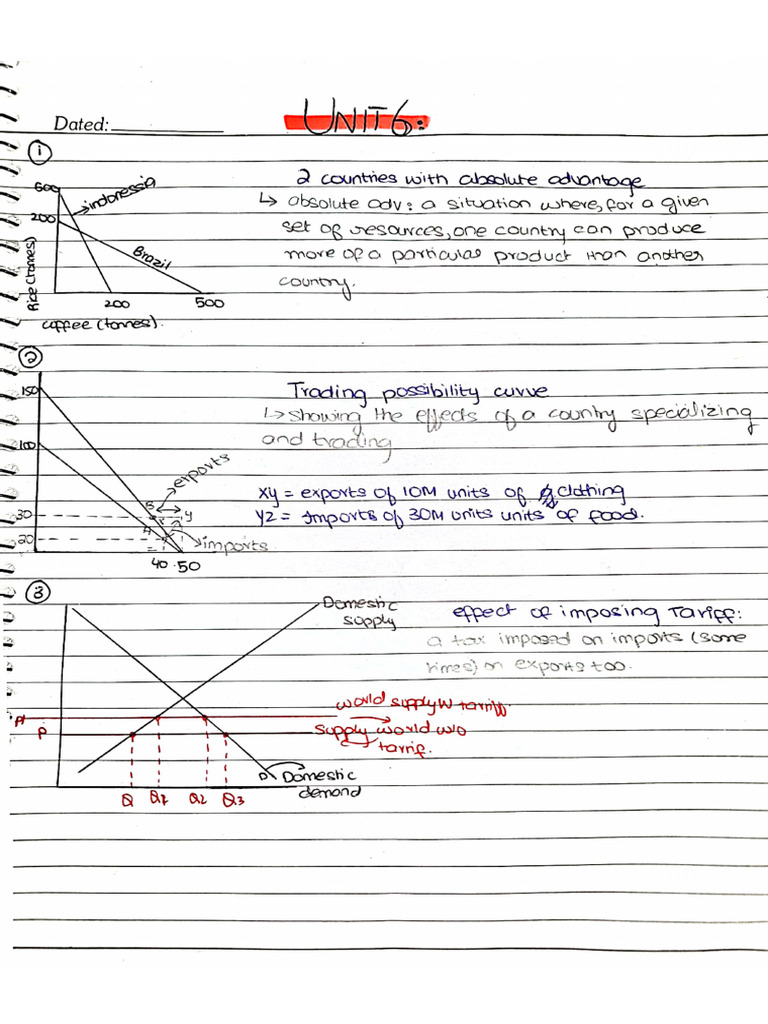 UNIT 6:
Dated:
1
2 countries with absolute advantage
↳ absolute adv: a situation where, for a given
set of resources, one country can produce
more of a particular product than another
country.
600
200
Rice (tonnes)
indonessia
Brazil
200
500
coffee (tonnes).
2
Trading possibility curve
↳ showing the effects of a country specializing
and trading
XY = exports of 10M units of clothing
YZ = Imports of 30M units units of food.
150
100
30
20
exports
y
imports
40
50
3
effect of imposing Tariff:
a tax imposed on imports (some
times) on exports too.
Domestic
supply
world supply W tarriff
supply world w/o
tarrif.
P'
P
D
Domestic
demand
Q
Q1
Q2
Q3